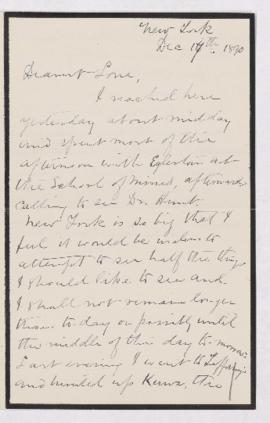 New York
Dec 17th 1890
Dearest Love,
I reached here
yesterday about midday
and spent most of the
afternoon with Egleston at
the School of Mines, afterwards
calling to see Dr. Hunt.
New York is so big that I
feel it would be useless to
attempt to see half the things
I should like to see and
I shall not remain longer
than to day or possibly until
the middle of the day to morrow.
Last evening I went to Tiffany's
and hunted up Kunz, the